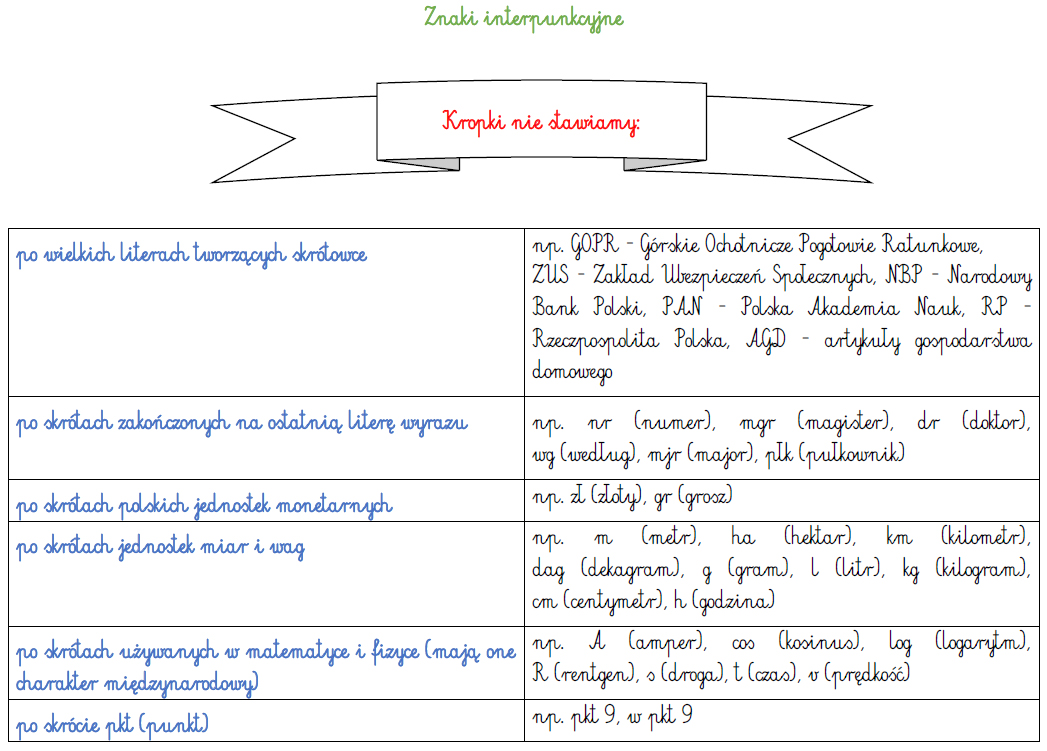 Znaki interpunkcyjne
Kropki nie stawiamy:
po wielkich literach tworzących skrótowce
np. GOPR - Górskie Ochotnicze Pogotowie Ratunkowe,
ZUS - Zakład Ubezpieczeń Społecznych, NBP - Narodowy
Bank Polski, PAN - Polska Akademia Nauk, RP -
Rzeczpospolita Polska, AGD - artykuły gospodarstwa
domowego
po skrótach zakończonych na ostatnią literę wyrazu
np. nr (numer), mgr (magister), dr (doktor),
wg (według), mjr (major), płk (pułkownik)
po skrótach polskich jednostek monetarnych
np. zł (złoty), gr (grosz)
po skrótach jednostek miar i wag
np. m (metr), ha (hektar), km (kilometr),
dag (dekagram), g (gram), l (litr), kg (kilogram),
cm (centymetr), h (godzina)
po skrótach używanych w matematyce i fizyce (mają one
charakter międzynarodowy)
np. A (amper), cos (kosinus), log (logarytm),
R (rentgen), s (droga), t (czas), v (prędkość)
po skrócie pkt (punkt)
np. pkt 9, w pkt 9